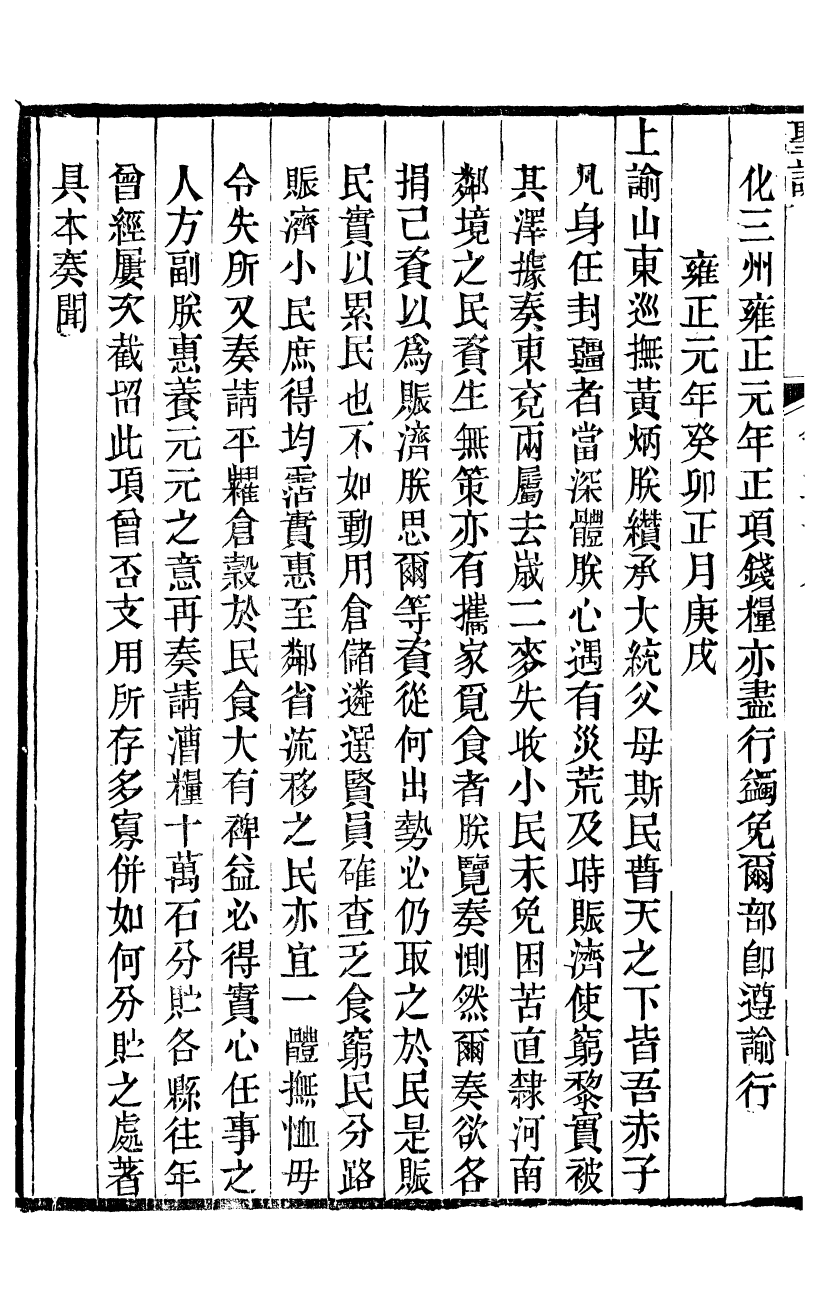 聖訓
化三州雍正元年正項錢糧亦盡行蠲免爾部卽遵諭行
雍正元年癸卯正月庚戌
上諭山東巡撫黃炳朕纘承大統父母斯民普天之下皆吾赤子
凡身任封疆者當深體朕心遇有災荒及時賑濟使窮黎實被
其澤據奏東兗兩屬去歲二麥失收小民未免困苦直隸河南
鄰境之民資生無策亦有攜家覓食者朕覽奏惻然爾奏欲各
捐己資以爲賑濟朕思爾等資從何出勢必仍取之於民是賑
民實以累民也不如動用倉儲遴選賢員確查乏食窮民分路
賑濟小民庶得均霑實惠至鄰省流移之民亦宜一體撫恤毋
令失所又奏請平糶倉穀於民食大有裨益必得實心任事之
人方副朕惠養元元之意再奏請漕糧十萬石分貯各縣往年
曾經屢次截留此項曾否支用所存多寡併如何分貯之處著
具本奏聞